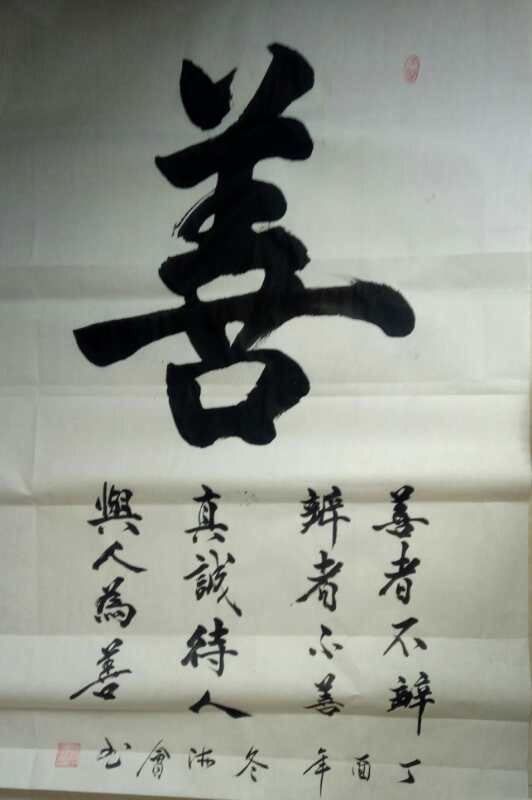 善
善者不辨
辨者不善
真誠待人
與人為善
丁酉年冬 會书